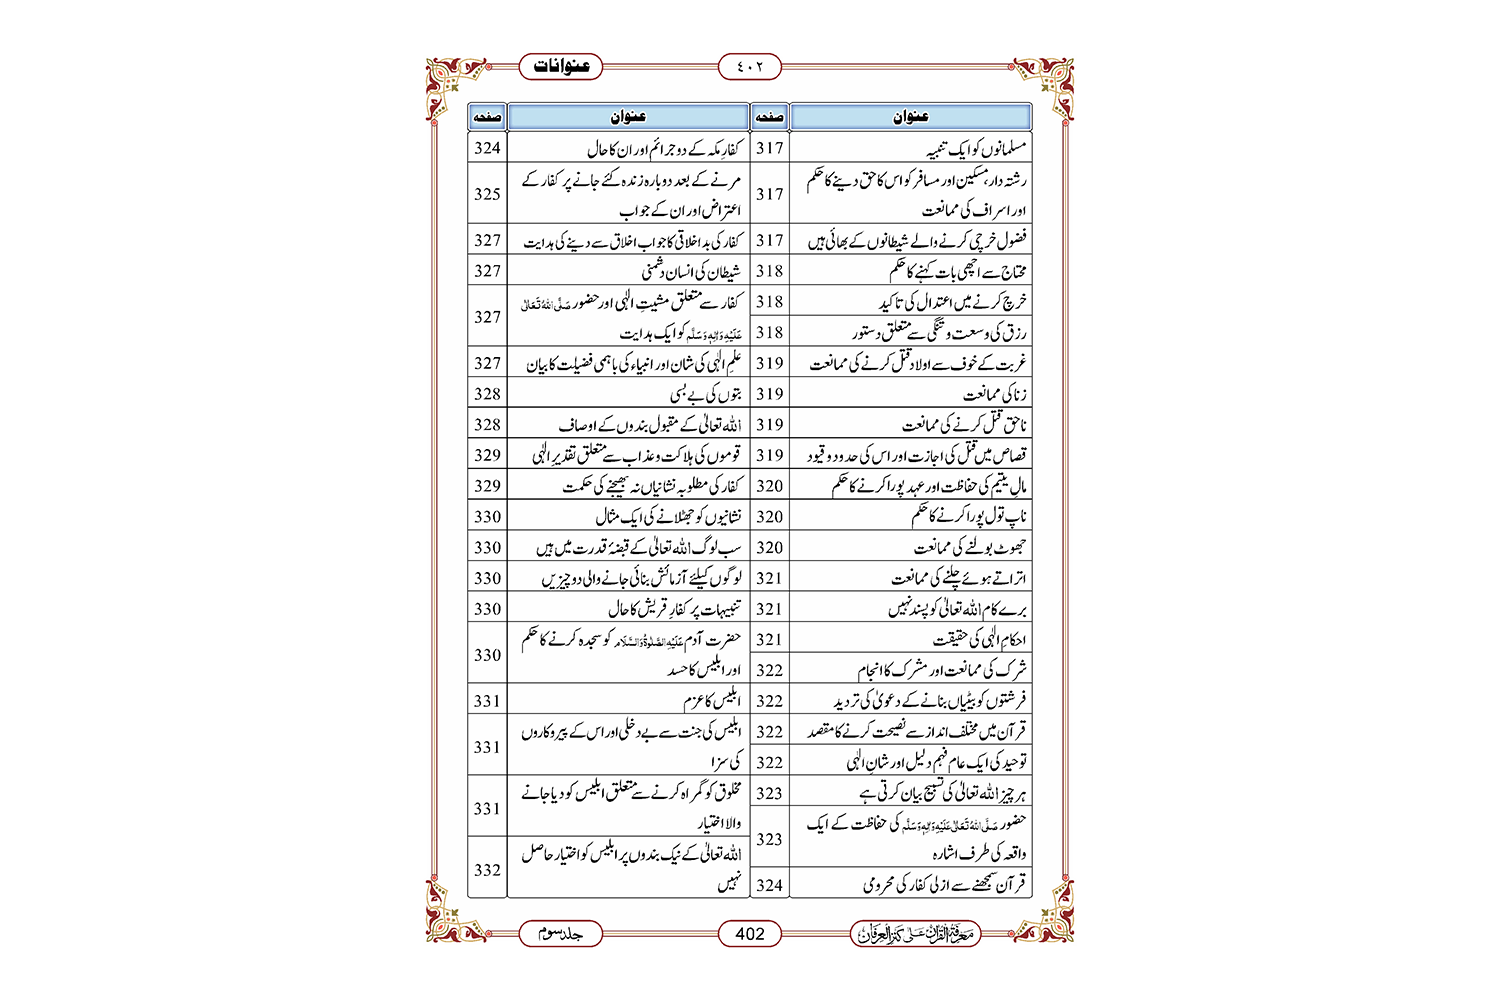 عنوانات
٤٠٢
عنوان صفحہ
مسلمانوں کو ایک تنبیہ 317
رشتہ دار، مسکین اور مسافر کو اس کا حق دینے کا حکم
اور اسراف کی ممانعت 317
فضول خرچی کرنے والے شیطانوں کے بھائی ہیں 317
محتاج سے اچھی بات کہنے کا حکم 318
خرچ کرنے میں اعتدال کی تاکید 318
رزق کی وسعت و تنگی سے متعلق دستور 318
غربت کے خوف سے اولاد قتل کرنے کی ممانعت 319
زنا کی ممانعت 319
ناحق قتل کرنے کی ممانعت 319
قصاص میں قتل کی اجازت اور اس کی حدود و قیود 319
مالِ یتیم کی حفاظت اور عہد پورا کرنے کا حکم 320
ناپ تول پورا کرنے کا حکم 320
جھوٹ بولنے کی ممانعت 320
اتراتے ہوئے چلنے کی ممانعت 321
برے کام اللہ تعالیٰ کو پسند نہیں 321
احکامِ الٰہی کی حقیقت 321
شرک کی ممانعت اور مشرک کا انجام 322
فرشتوں کو بیٹیاں بنانے کے دعویٰ کی تردید 322
قرآن میں مختلف انداز سے نصیحت کرنے کا مقصد 322
توحید کی ایک عام فہم دلیل اور شانِ الٰہی 322
ہر چیز اللہ تعالیٰ کی تسبیح بیان کرتی ہے 323
حضور صَلَّی اللہُ تَعَالٰی عَلَیْہِ وَاٰلِہٖ وَسَلَّم کی حفاظت کے ایک
واقعہ کی طرف اشارہ 323
قرآن سمجھنے سے ازلی کفار کی محرومی 324
عنوان صفحہ
کفارِ مکہ کے دو جرائم اور ان کا حال 324
مرنے کے بعد دوبارہ زندہ کئے جانے پر کفار کے
اعتراض اور ان کے جواب 325
کفار کی بداخلاقی کا جواب اخلاق سے دینے کی ہدایت 327
شیطان کی انسان دشمنی 327
کفار سے متعلق مشیتِ الٰہی اور حضور صَلَّی اللہُ تَعَالٰی
عَلَیْہِ وَاٰلِہٖ وَسَلَّم کو ایک ہدایت 327
علمِ الٰہی کی شان اور انبیاء کی باہمی فضیلت کا بیان 327
بتوں کی بے بسی 328
اللہ تعالیٰ کے مقبول بندوں کے اوصاف 328
قوموں کی ہلاکت و عذاب سے متعلق تقدیرِ الٰہی 329
کفار کی مطلوبہ نشانیاں نہ بھیجنے کی حکمت 329
نشانیوں کو جھٹلانے کی ایک مثال 330
سب لوگ اللہ تعالیٰ کے قبضۂ قدرت میں ہیں 330
لوگوں کیلئے آزمائش بنائی جانے والی دو چیزیں 330
تنبیہات پر کفارِ قریش کا حال 330
حضرت آدم عَلَیْہِ الصَّلٰوۃُ وَالسَّلَام کو سجدہ کرنے کا حکم
اور ابلیس کا حسد 330
ابلیس کا عزم 331
ابلیس کی جنت سے بے دخلی اور اس کے پیروکاروں
کی سزا 331
مخلوق کو گمراہ کرنے سے متعلق ابلیس کو دیا جانے
والا اختیار 331
اللہ تعالیٰ کے نیک بندوں پر ابلیس کو اختیار حاصل
نہیں 332
معرفۃ القرآن علٰی کنز العرفان
402
جلد سوم